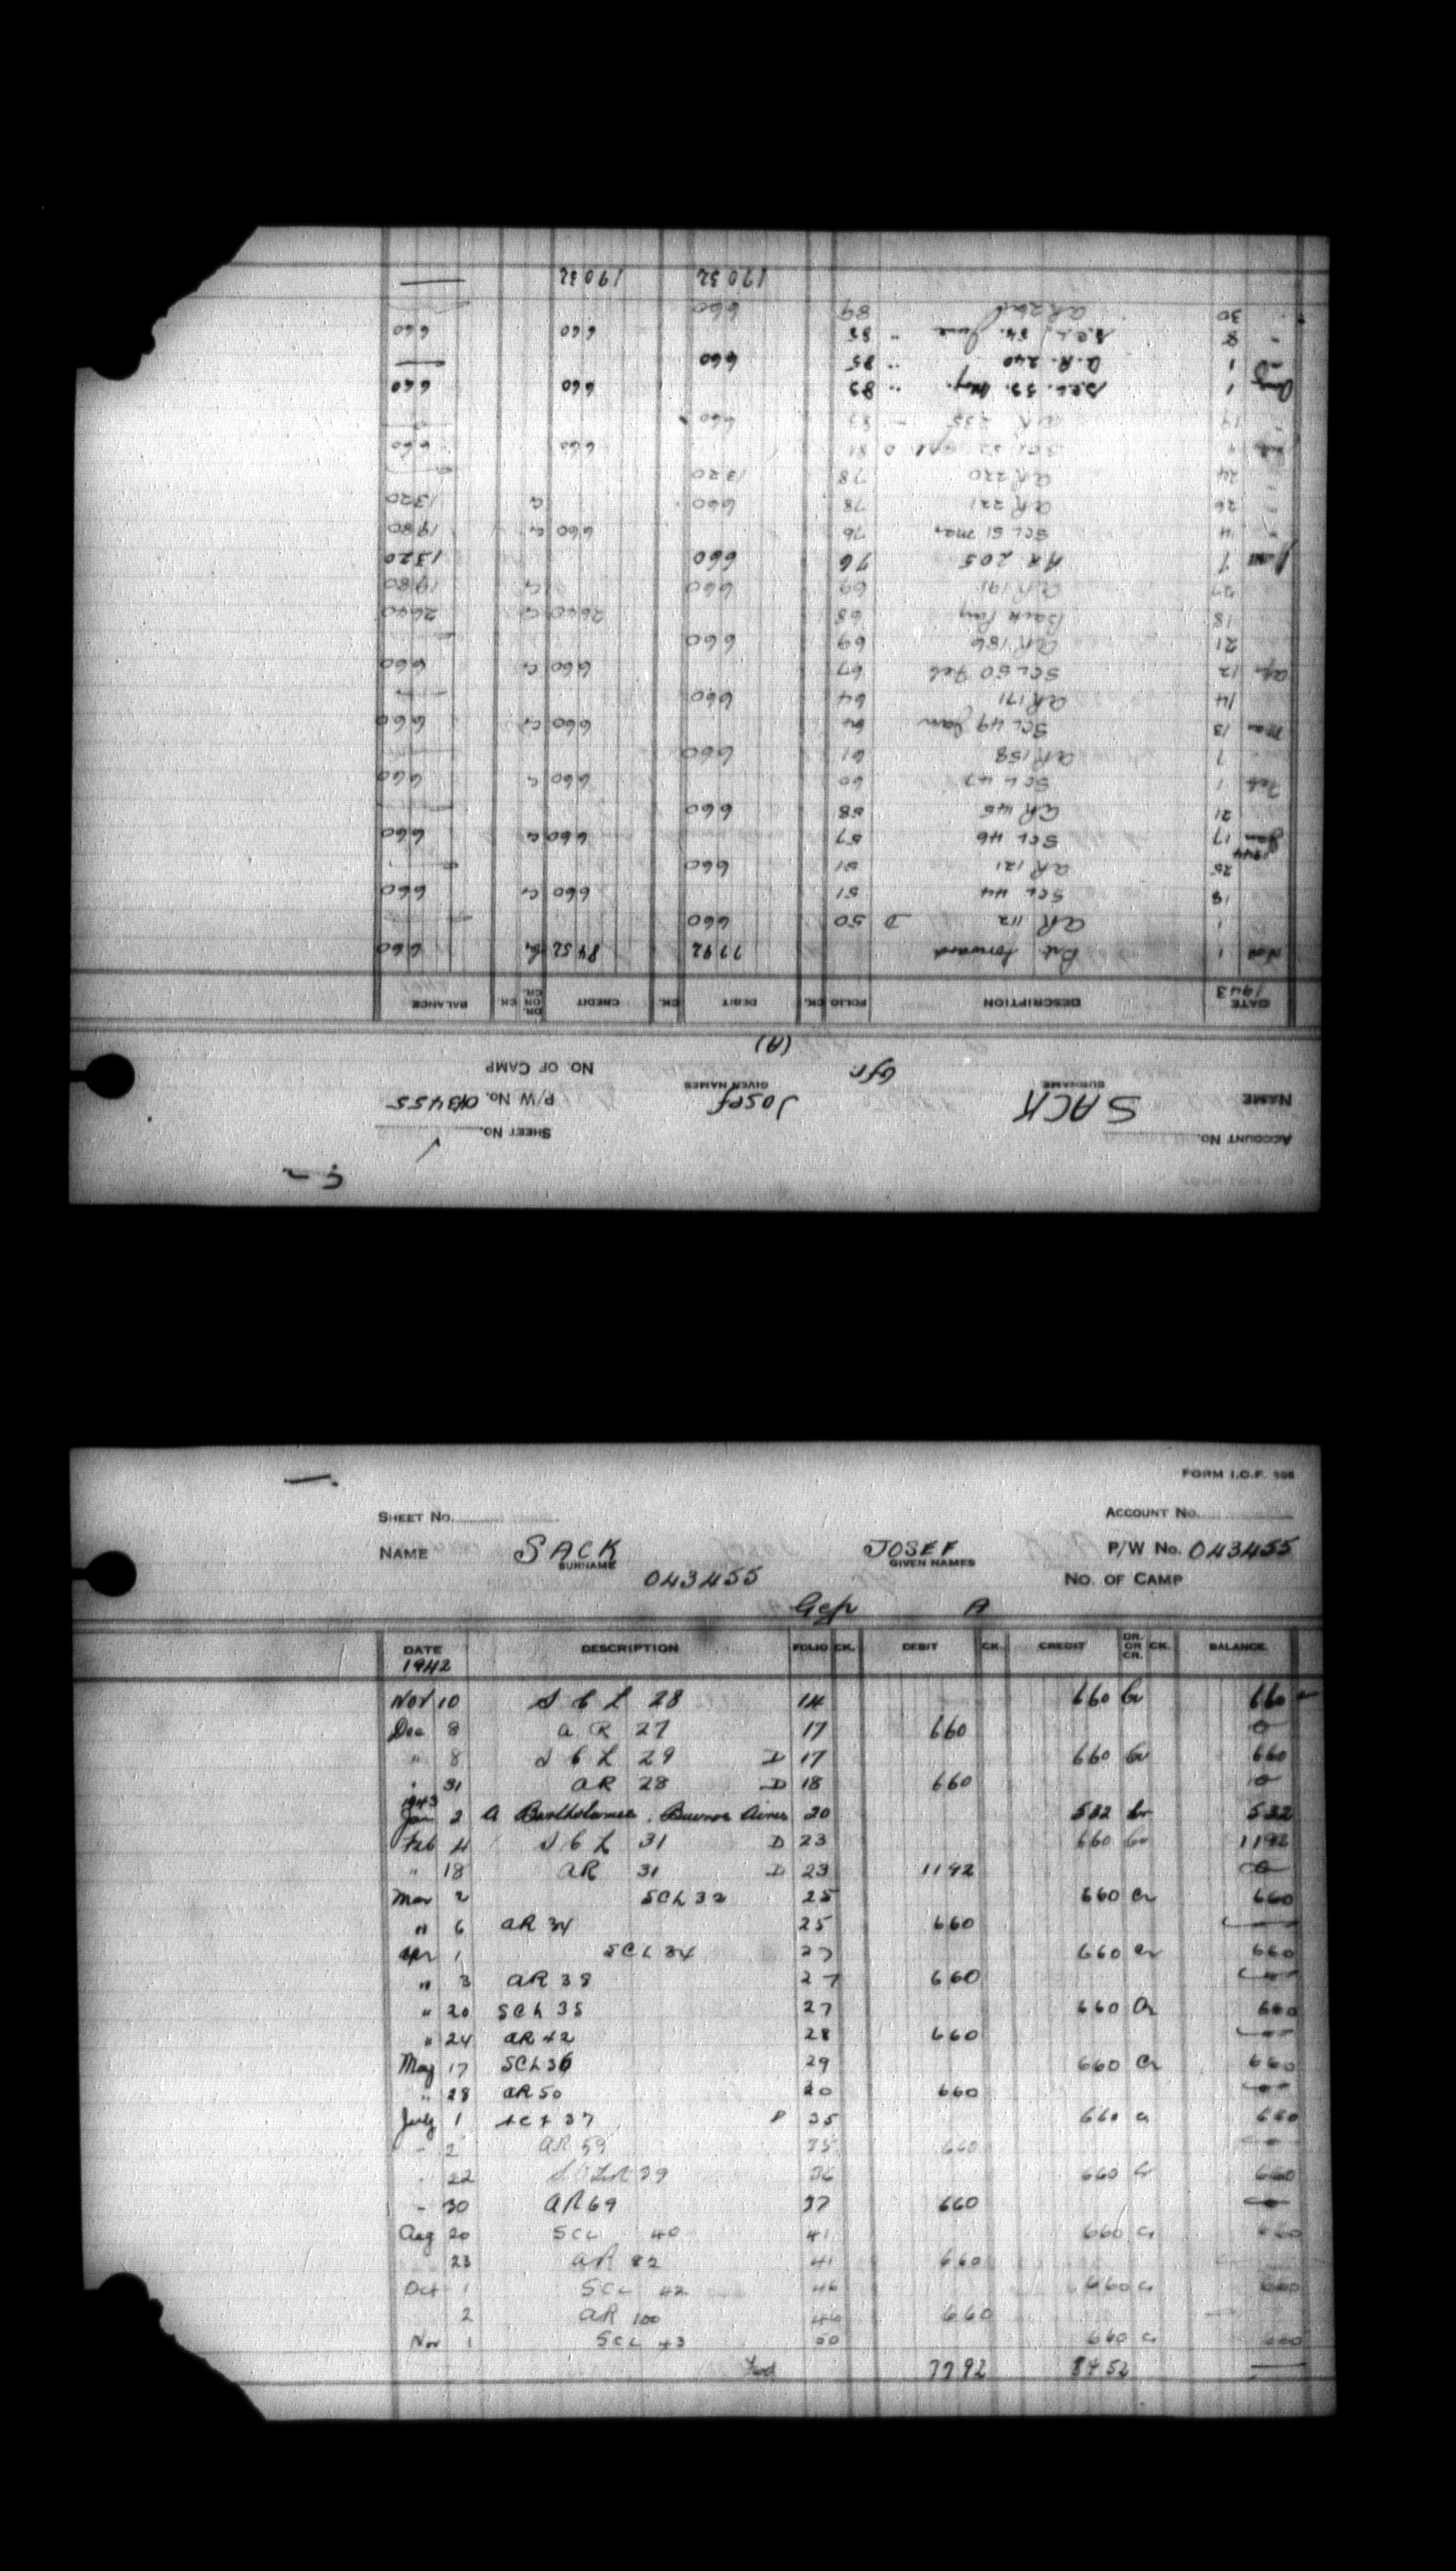 FORM I.O.F.
SHEET No. ACCOUNT No.
NAME SACK JOSEF P/W No. 043455
SURNAME GIVEN NAMES
043455 NO. OF CAMP
Gefr A
DATE DESCRIPTION FOLIO CK. DEBIT CK. CREDIT DR. OR CR. CK. BALANCE
1942
Nov 10 S C L 28 14 660 Cr 660
Dec 8 a R 27 17 660 0
" 8 S C L 29 D 17 660 Cr 660
" 31 AR 28 D 18 660 0
1943
Jan 2 A Bartholomae, Buenos Aires 20 532 Cr 532
Feb 4 S C L 31 D 23 660 Cr 1192
" 18 AR 31 D 23 1192 0
Mar 2 SCL 32 25 660 Cr 660
" 6 AR 34 25 660 —
Apr 1 SCL 34 27 660 Cr 660
" 3 AR 38 27 660 —
" 20 SCL 35 27 660 Cr 660
" 24 AR 42 28 660 —
May 17 SCL 36 29 660 Cr 660
" 28 AR 50 30 660 —
July 1 SCL 37 D 35 660 Cr 660
" 2 AR 59 35 660 —
" 22 39 36 660 Cr 660
" 30 AR 69 37 660 —
Aug 20 SCL 40 41 660 Cr 660
23 AR 82 41 660
Oct 1 SCL 42 46 660 Cr 660
2 AR 100 46 660 —
Nov 1 SCL 43 50 660 Cr 660
Fwd 7792 8452 —
ACCOUNT No. SHEET No.
NAME SACK Josef P/W No. 043455
SURNAME Gfr GIVEN NAMES NO. OF CAMP
(A)
DATE DESCRIPTION FOLIO CK. DEBIT CK. CREDIT DR. OR CR. CK. BALANCE
1943
Nov 1 Bat forward 7792 8452 Cr 660
1 AR 112 D 50 660 —
18 SCL 44 51 660 Cr 660
25 AR 121 51 660 —
1944
Jan 17 SCL 46 57 660 Cr 660
21 AR 45 58 660 —
Feb 1 SCL 47 60 660 Cr 660
7 AR 158 61 660 —
Mar 13 SCL 49 Jan 64 660 Cr 660
14 AR 171 64 660 —
Apr 12 SCL 50 Feb 67 660 Cr 660
21 AR 186 69 660 —
18 Back Pay 68 2640 Cr 2640
27 AR 191 69 660 Cr 1980
June 1 AR 205 76 660 1320
" 4 SCL 51 Mar 76 660 Cr 1980
" 26 AR 221 78 660 Cr 1320
" 24 AR 220 78 1320 —
4 SCL 52 81 660 660
19 AR 235 83 660 —
Aug 1 S.C.L. 53. May. " 83 660 660
" 1 A.R. 240 " 85 660 —
" 8 S.C.L. 54. June " 85 660 660
" 30 AR 89 660 —
17032 17032 —